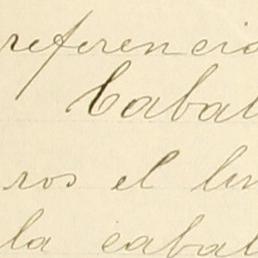 referencia
Cabal
ros el lin
la cabal